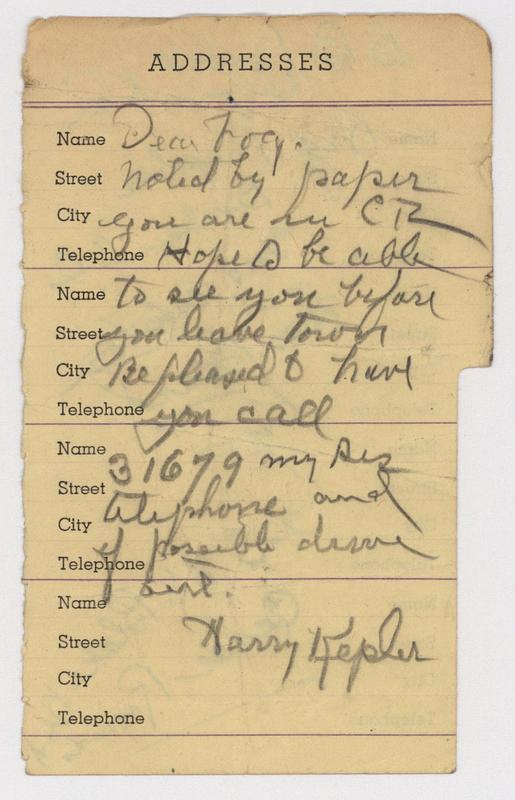 ADDRESSES
Name Dear Foq.
Street noted by paper
City you are in CR
Telephone Hope to be able
Name to see you before
Street you leave town
City Be pleased to have
Telephone you call
Name 31679 my Res
Street
City telephone and
Telephone if possible drive
Name out.
Street Harry Kepler
City
Telephone